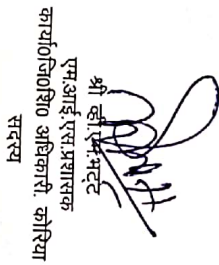 श्री भट्ट
एम.आई.एस.प्रशासक
कार्या०जि०शि० अधिकारी, कोरिया
सदस्य